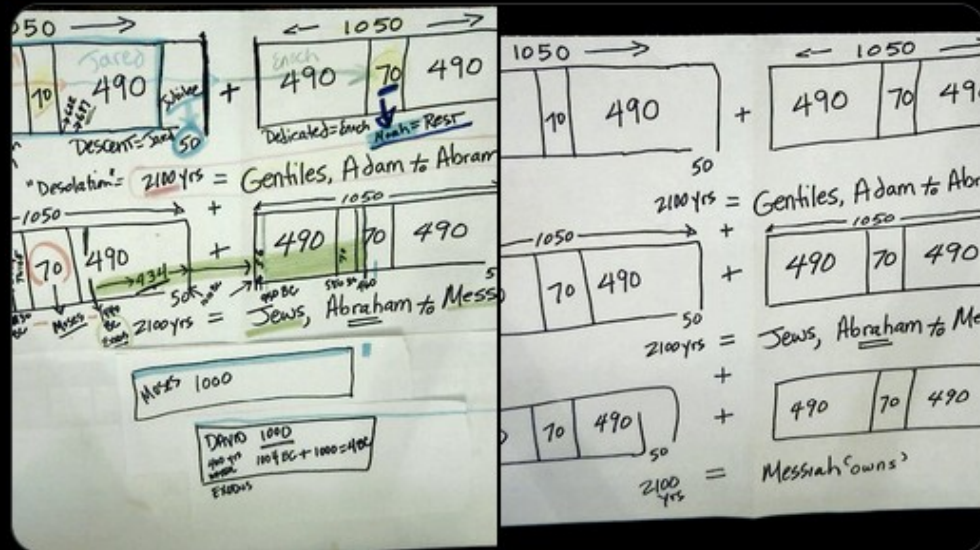 050 →
← 1050 →
Jared
Enoch
70
490
Jubilee
+
490
70
490
Descent=Jared
50
Dedicated=Enoch
Noah=Rest
"Desolation"=
2100 yrs = Gentiles, Adam to Abram
1050
+
1050
70
490
434
50
+
490
70
490
Moses
2100 yrs = Jews, Abraham to Mess
Moses 1000
DAVID 1000
1004 BC + 1000 = 4 BC
EXODUS
1050 →
← 1050 →
70
490
50
+
490
70
49
2100 yrs = Gentiles, Adam to Abr
1050
+
1050
70
490
50
+
490
70
490
2100 yrs = Jews, Abraham to Me
+
70
490
50
+
490
70
490
2100 yrs = Messiah 'owns'